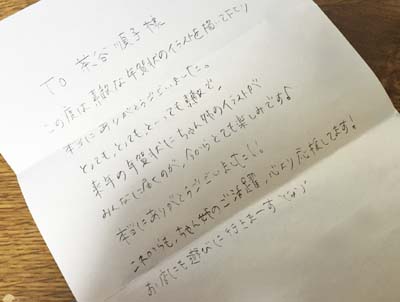 To 茶谷順子様
この度は素敵な年賀状のイラストを描いて下さり
本当にありがとうございました。
とっても、とっても、とーっても素敵で、
来年の年賀状にちゃん姉のイラストが
みんなに届くのが、今からとても楽しみです♪
本当にありがとうございました!!
これからも、ちゃん姉のご活躍、心より応援してます!
お店にも遊びに行きまーす